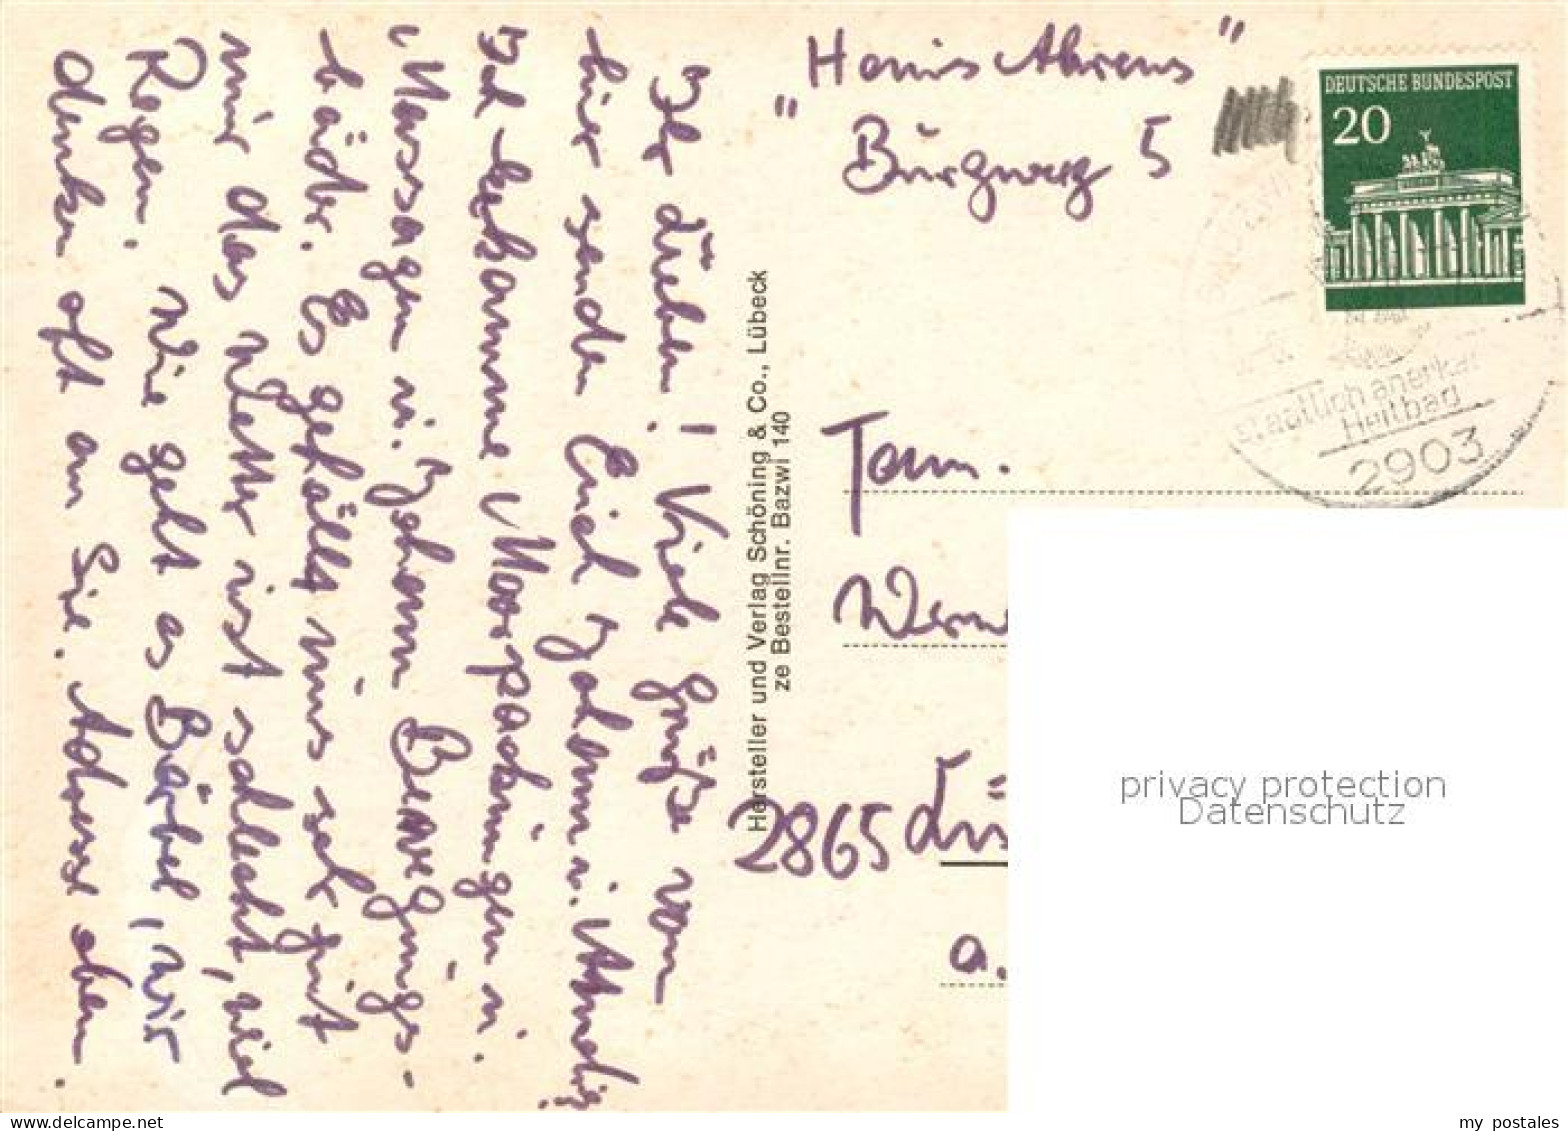 Ihr Lieben! Viele Grüße von
hier senden Euch Johann u. Anneli
Ich bekomme Moorpackungen u.
Massagen u. Johann Bewegungs-
bäder. Es gefällt uns sehr gut
nur das Wetter ist schlecht, viel
Regen. Wie geht es Bärbel, wir
denken oft an Sie. Adresse oben.
"Haus Ahrens"
Burgweg 5
DEUTSCHE BUNDESPOST
20
staatlich anerka
Heilbad
2903
Hersteller und Verlag Schöning & Co., Lübeck
ze Bestellnr. Bazwi 140
Fam.
Wern
2865 Lü
a.
privacy protection
Datenschutz
my postales